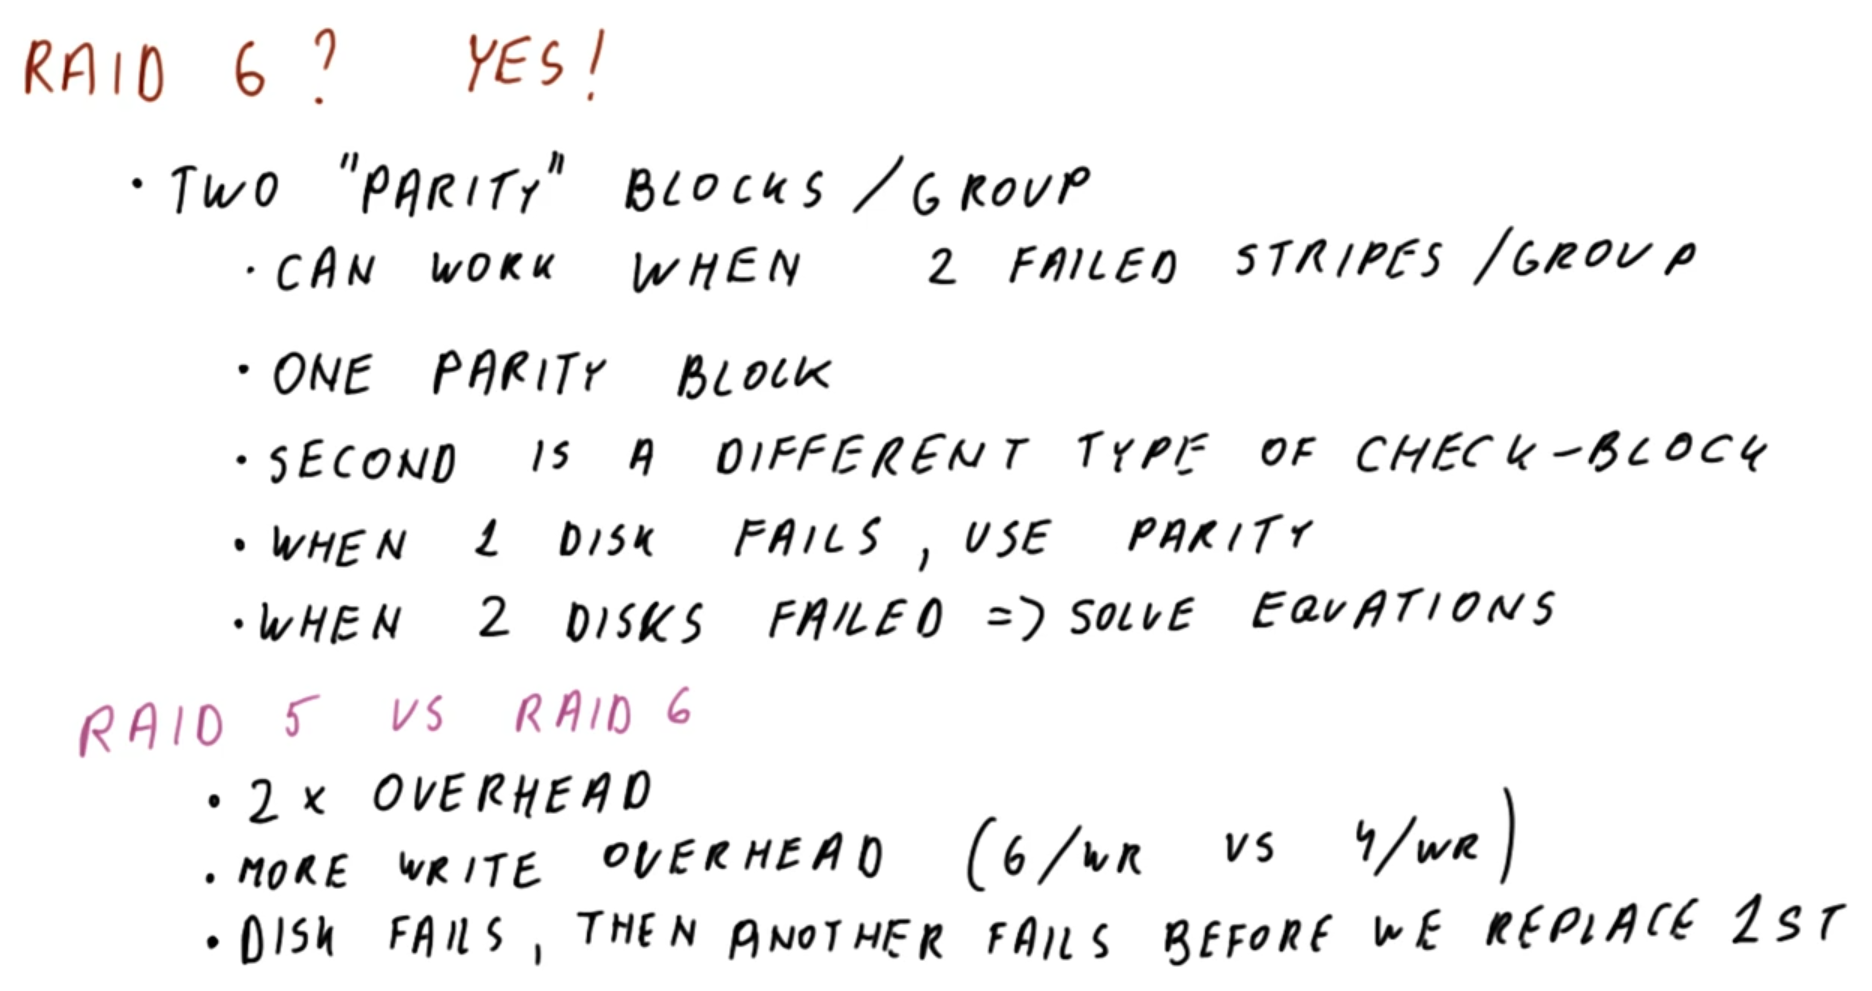 RAID 6? YES!
• TWO "PARITY" BLOCKS/GROUP
• CAN WORK WHEN 2 FAILED STRIPES/GROUP
• ONE PARITY BLOCK
• SECOND IS A DIFFERENT TYPE OF CHECK-BLOCK
• WHEN 1 DISK FAILS, USE PARITY
• WHEN 2 DISKS FAILED => SOLVE EQUATIONS
RAID 5 VS RAID 6
• 2x OVERHEAD
• MORE WRITE OVERHEAD (6/WR VS 4/WR)
• DISK FAILS, THEN ANOTHER FAILS BEFORE WE REPLACE 1ST